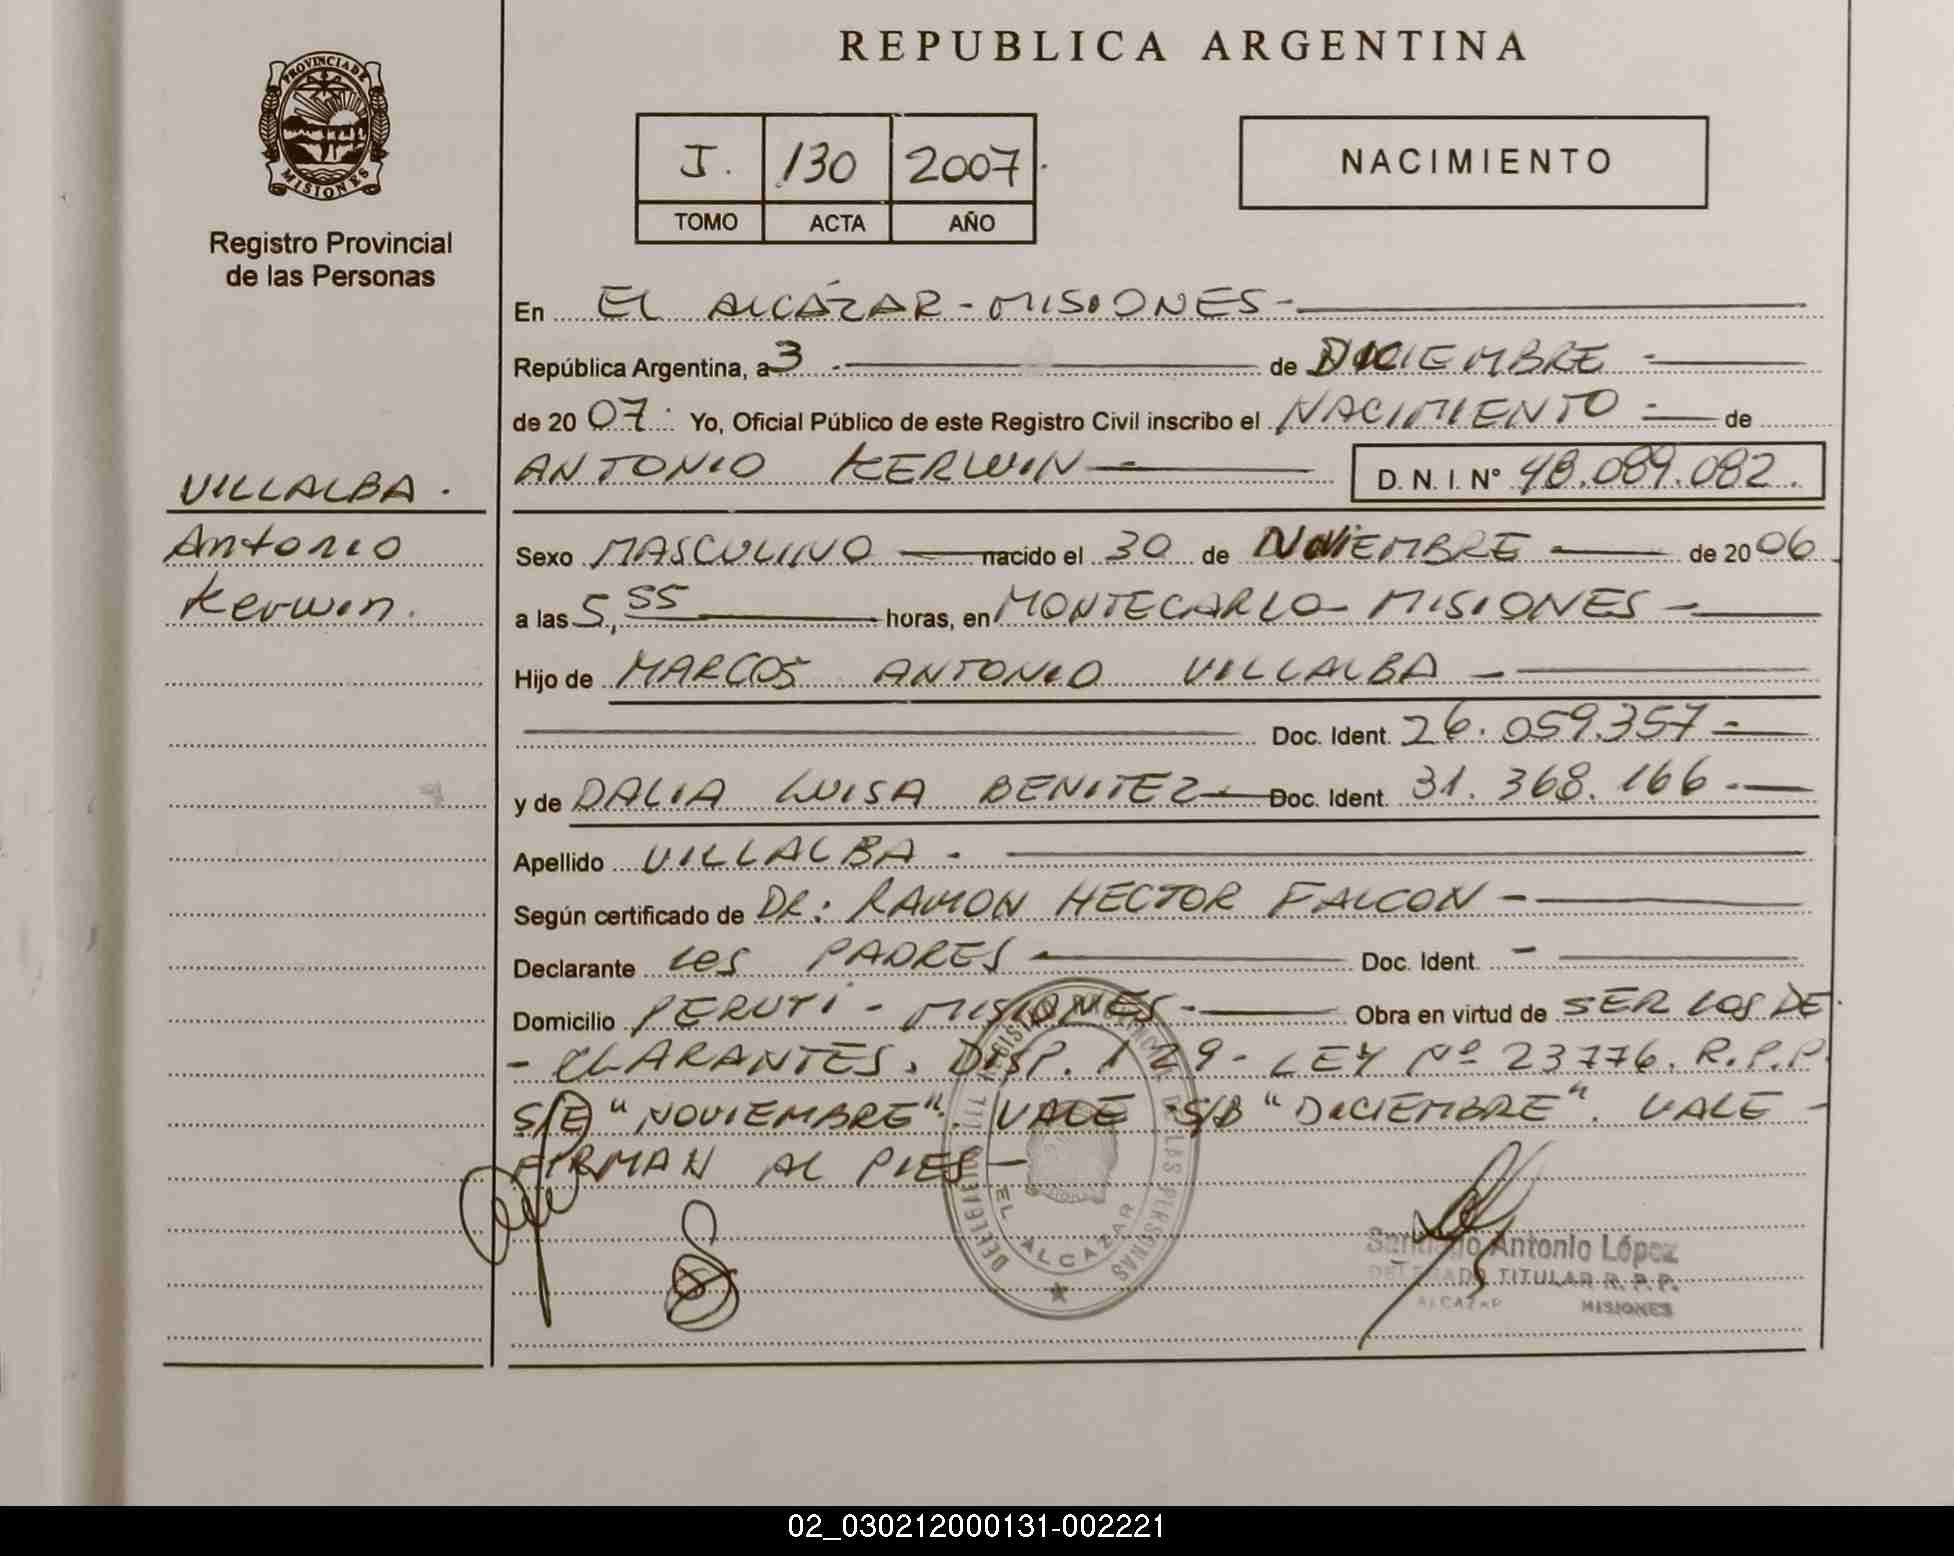 REPUBLICA ARGENTINA
PROVINCIA DE MISIONES
Registro Provincial
de las Personas
J. 130 2007.
TOMO ACTA AÑO
NACIMIENTO
En EL ALCÁZAR - MISIONES -
República Argentina, a 3 . de DICIEMBRE -
de 20 07. Yo, Oficial Público de este Registro Civil inscribo el NACIMIENTO - de
ANTONIO KERWIN - D. N. I. N° 48.089.082.
VILLALBA .
Antonio
Kerwin.
Sexo MASCULINO nacido el 30 de NOVIEMBRE de 20 06
a las 5,55 horas, en MONTECARLO - MISIONES -
Hijo de MARCOS ANTONIO VILLALBA -
Doc. Ident. 26.059.357 -
y de DALIA LUISA BENITEZ - Doc. Ident. 31.368.166 -
Apellido VILLALBA .
Según certificado de DR: RAMON HECTOR FALCON -
Declarante LOS PADRES - Doc. Ident. -
Domicilio PERUTI - MISIONES - Obra en virtud de SER LOS DE
- CLARANTES. DISP. 129 - LEY Nº 23776. R.P.P.
S/E "NOVIEMBRE". VALE S/B "DICIEMBRE". VALE -
FIRMAN AL PIES -
DELEGACION REGISTRO PROVINCIAL DE LAS PERSONAS
EL ALCAZAR
Santiago Antonio López
DELEGADO TITULAR R. P. P.
ALCAZAR MISIONES
02_030212000131-002221